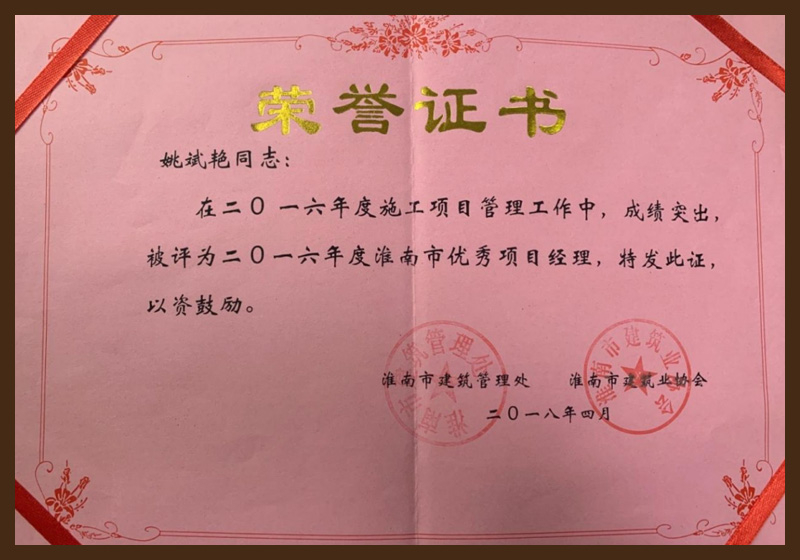 荣誉证书
姚斌艳同志：
在二〇一六年度施工项目管理工作中，成绩突出，
被评为二〇一六年度淮南市优秀项目经理，特发此证，
以资鼓励。
淮南市建筑管理处 淮南市建筑业协会
二〇一八年四月
淮南市建筑管理处
淮南市建筑业协会